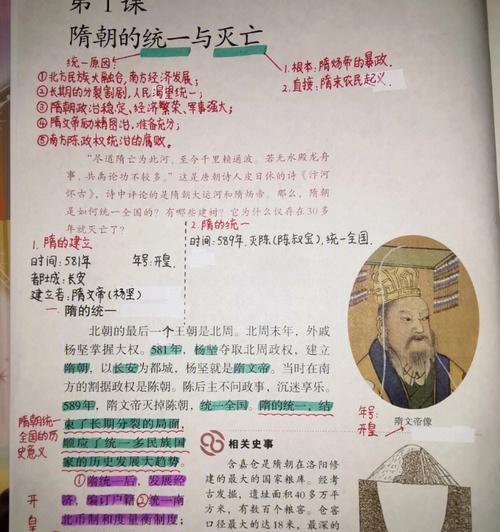 第1课
隋朝的统一与灭亡
统一原因:
①北方民族大融合,南方经济发展;
②长期的分裂割剧,人民渴望统一;
③隋朝政治稳定、经济繁荣、军事强大;
④隋文帝励精图治,准备充分;
⑤南方陈政权统治的腐败。
1.根本:隋炀帝的暴政。
2.直接:隋末农民起义。
“尽道隋亡为此河,至今千里赖通波。若无水殿龙舟
事,共禹论功不较多。”这是唐朝诗人皮日休的诗《汴河
怀古》,诗中评论的是隋朝大运河和隋炀帝。那么,隋朝
是如何统一全国的?有哪些建树?它为什么仅存在30多
年就灭亡了?
1.隋的建立
时间:581年 年号:开皇
都城:长安
建立者:隋文帝(杨坚)
2.隋的统一
时间:589年,灭陈(陈叔宝),统一全国.
一 隋的统一
北朝的最后一个王朝是北周。北周末年,外戚
杨坚掌握大权。581年,杨坚夺取北周政权,建立
隋朝,以长安为都城,杨坚就是隋文帝。当时在南
方的割据政权是陈朝。陈后主不问政事,沉迷享乐。
589年,隋文帝灭掉陈朝,统一全国。隋的统一,结
束了长期分裂的局面,
顺应了统一多民族国
家的历史发展大趋势。
①隋统一后,发展经
济,编订户籍②统一南
北币制和度量衡制度,
隋朝统一
全国的历
史意义
开
皇
年号:
开皇
隋文帝像
相关史事
含嘉仓是隋朝在洛阳修
建的最大的国家粮库。经考
古发掘,遗址面积40多万平
方米,有数百个粮窖。仓窖
口径最大的达18米,最深的